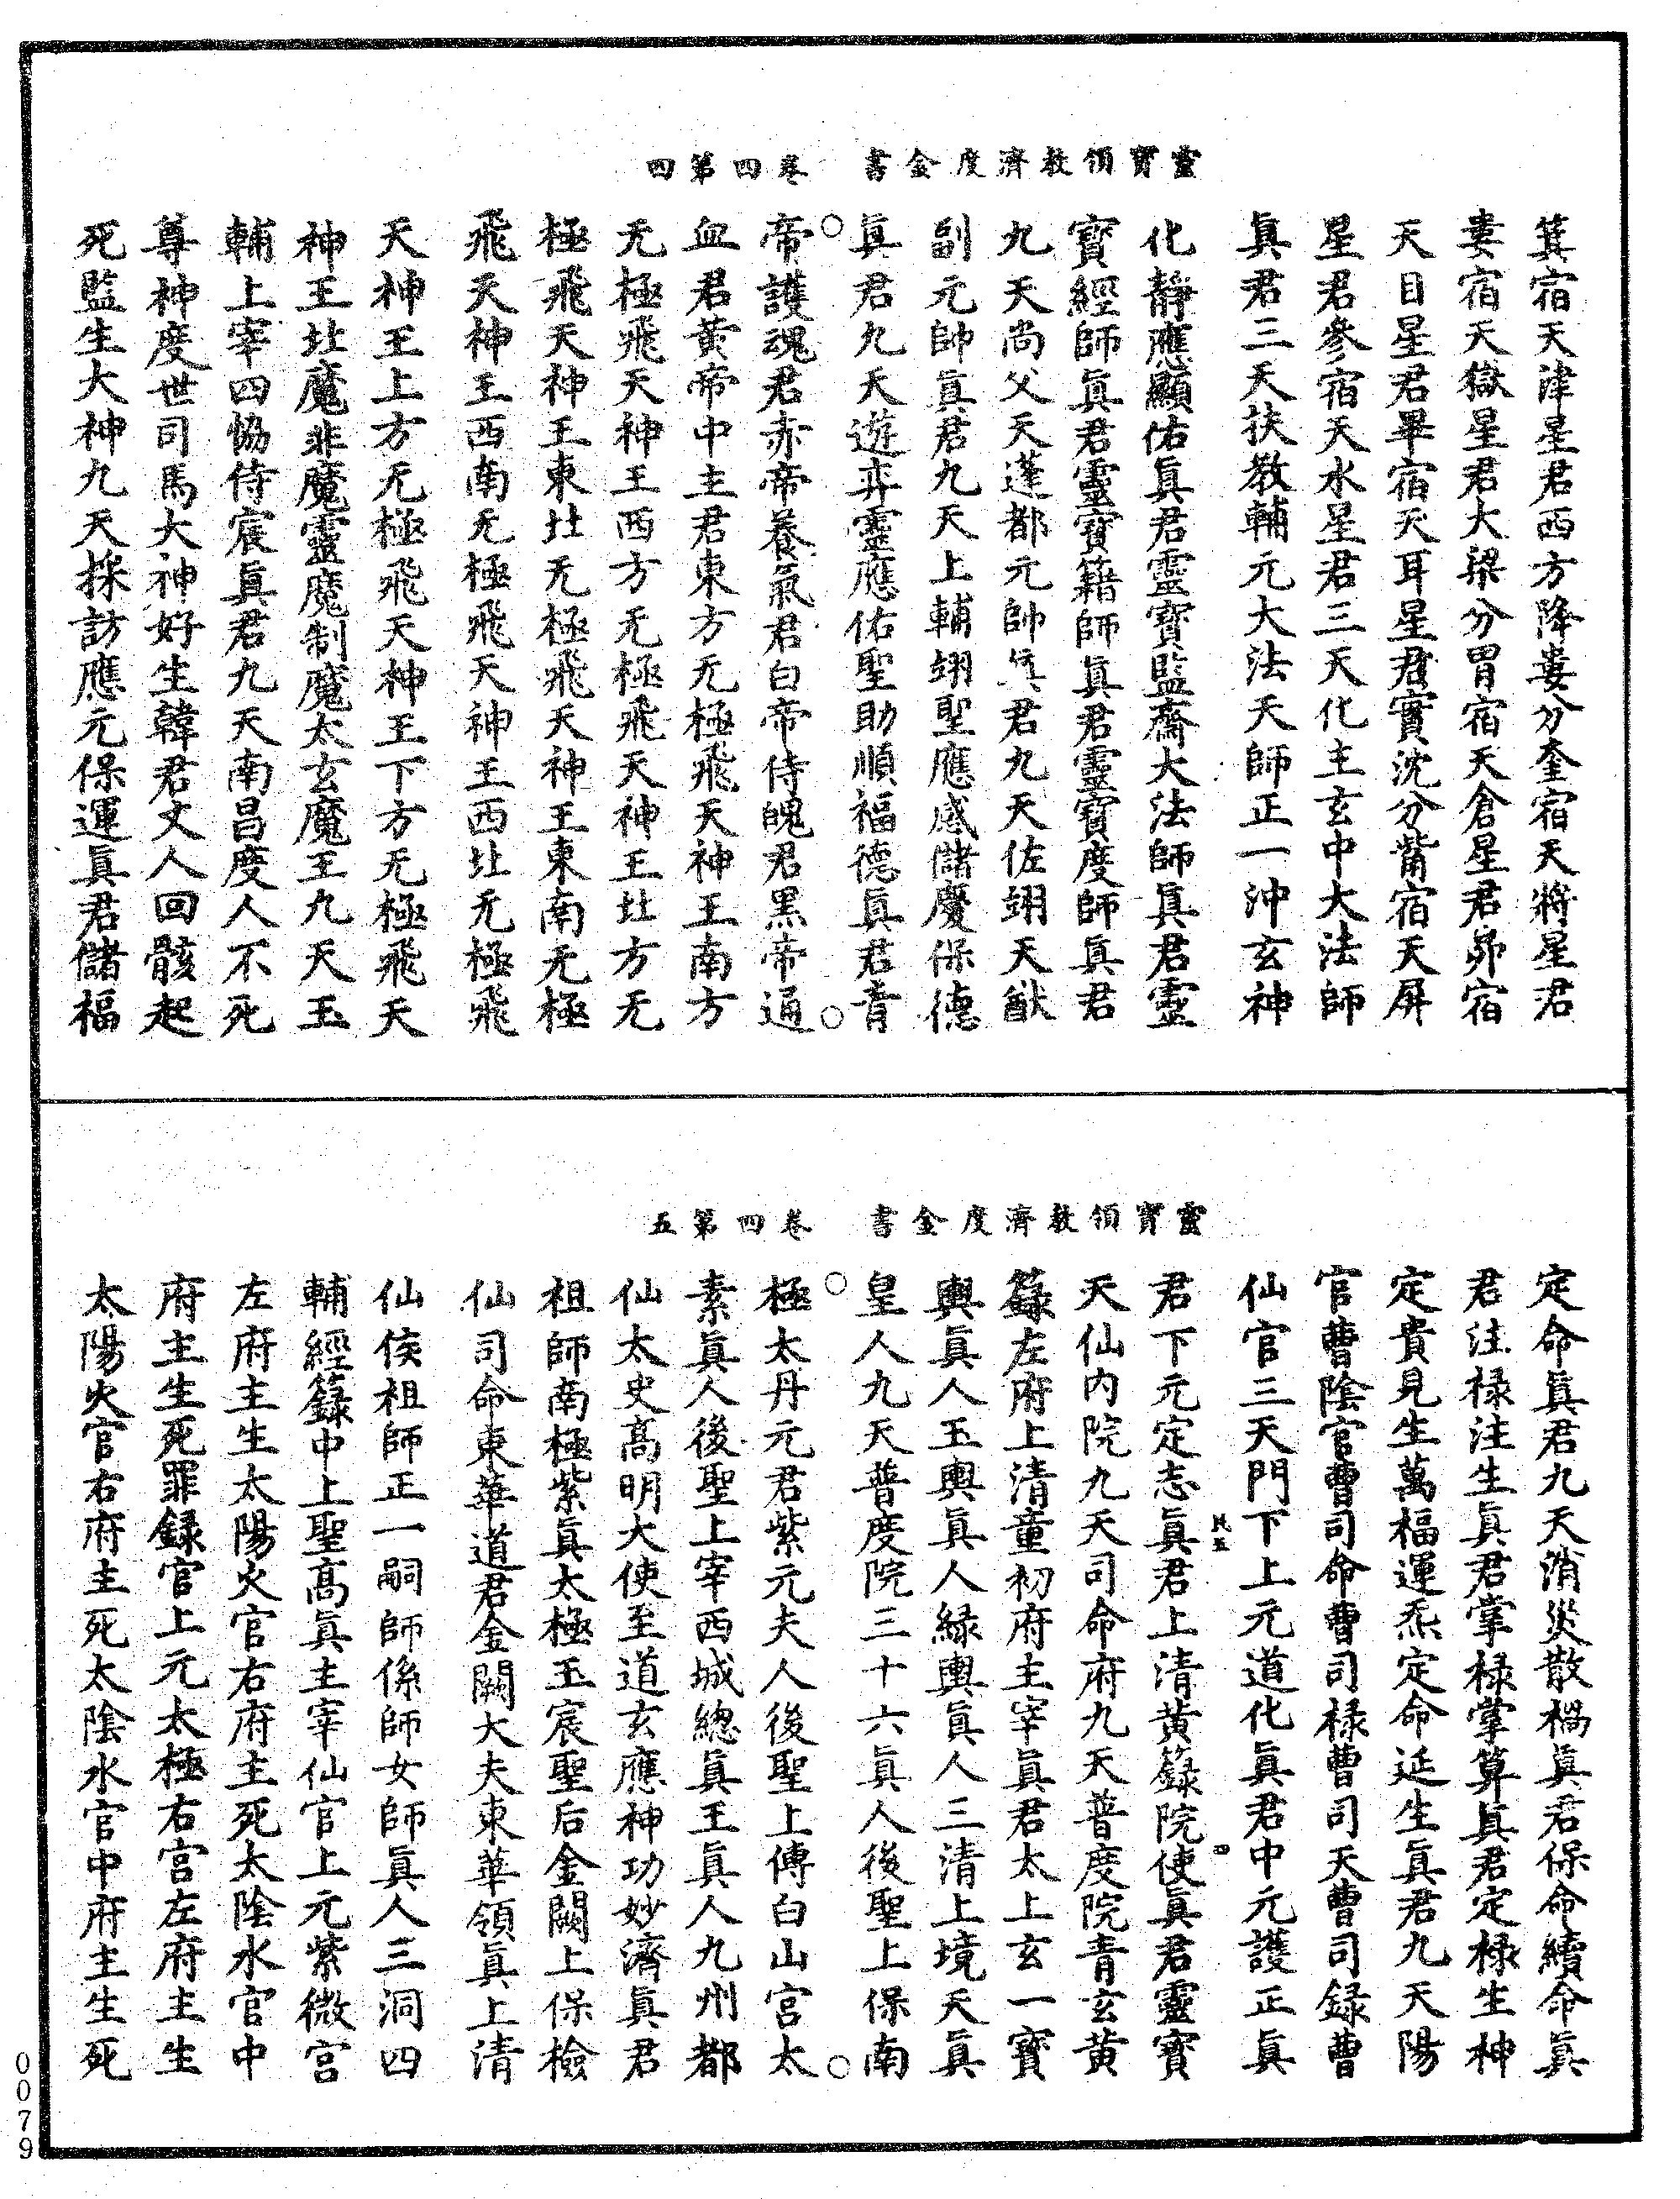 靈寶領教濟度金書　卷四第四
箕宿天津星君西方降婁分奎宿天將星君
婁宿天獄星君大梁分胃宿天倉星君昴宿
天目星君畢宿天耳星君實沈分觜宿天屏
星君參宿天水星君三天化主玄中大法師
眞君三天扶教輔元大法天師正一沖玄神
化靜應顯佑眞君靈寶監齋大法師眞君靈
寶經師眞君靈寶籍師眞君靈寶度師眞君
九天尚父天蓬都元帥眞君九天佐翊天猷
副元帥眞君九天上輔翊聖應感儲慶保德
眞君九天遊弈靈應佑聖助順福德眞君青
帝護魂君赤帝養氣君白帝侍魄君黑帝通
血君黃帝中主君東方无極飛天神王南方
无極飛天神王西方无極飛天神王北方无
極飛天神王東北无極飛天神王東南无極
飛天神王西南无極飛天神王西北无極飛
天神王上方无極飛天神王下方无極飛天
神王北魔非魔靈魔制魔太玄魔王九天玉
輔上宰四協侍宸眞君九天南昌度人不死
尊神度世司馬大神好生韓君丈人回骸起
死監生大神九天採訪應元保運眞君儲福
靈寶領教濟度金書　卷四第五
定命眞君九天消災散禍眞君保命續命眞
君注祿注生眞君掌祿掌算眞君定祿生神
定貴見生萬福運炁定命延生眞君九天陽
官曹陰官曹司命曹司祿曹司天曹司録曹
仙官三天門下上元道化眞君中元護正眞
君下元定志眞君上清黃籙院使眞君靈寶
天仙内院九天司命府九天普度院青玄黃
籙左府上清童初府主宰眞君太上玄一寶
輿眞人玉輿眞人緑輿眞人三清上境天眞
皇人九天普度院三十六眞人後聖上保南
極太丹元君紫元夫人後聖上傅白山宮太
素眞人後聖上宰西城總眞王眞人九州都
仙太史高明大使至道玄應神功妙濟眞君
祖師南極紫眞太極玉宸聖后金闕上保檢
仙司命東華道君金闕大夫東華領眞上清
仙侯祖師正一嗣師係師女師眞人三洞四
輔經籙中上聖高眞主宰仙官上元紫微宮
左府主生太陽火官右府主死太陰水官中
府主生死罪録官上元太極右宮左府主生
太陽火官右府主死太陰水官中府主生死
0079